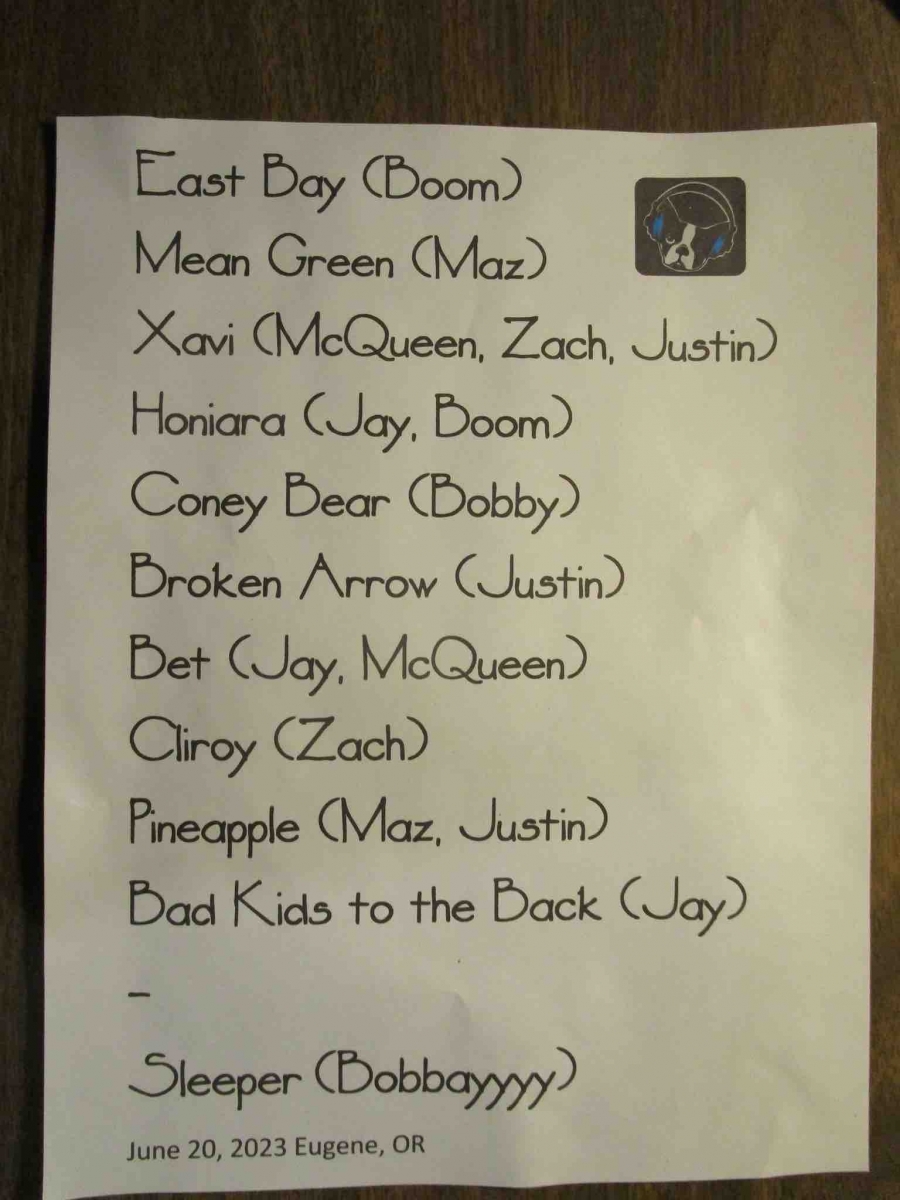 East Bay (Boom)
Mean Green (Maz)
Xavi (McQueen, Zach, Justin)
Honiara (Jay, Boom)
Coney Bear (Bobby)
Broken Arrow (Justin)
Bet (Jay, McQueen)
Cliroy (Zach)
Pineapple (Maz, Justin)
Bad Kids to the Back (Jay)
–
Sleeper (Bobbayyyy)
June 20, 2023 Eugene, OR